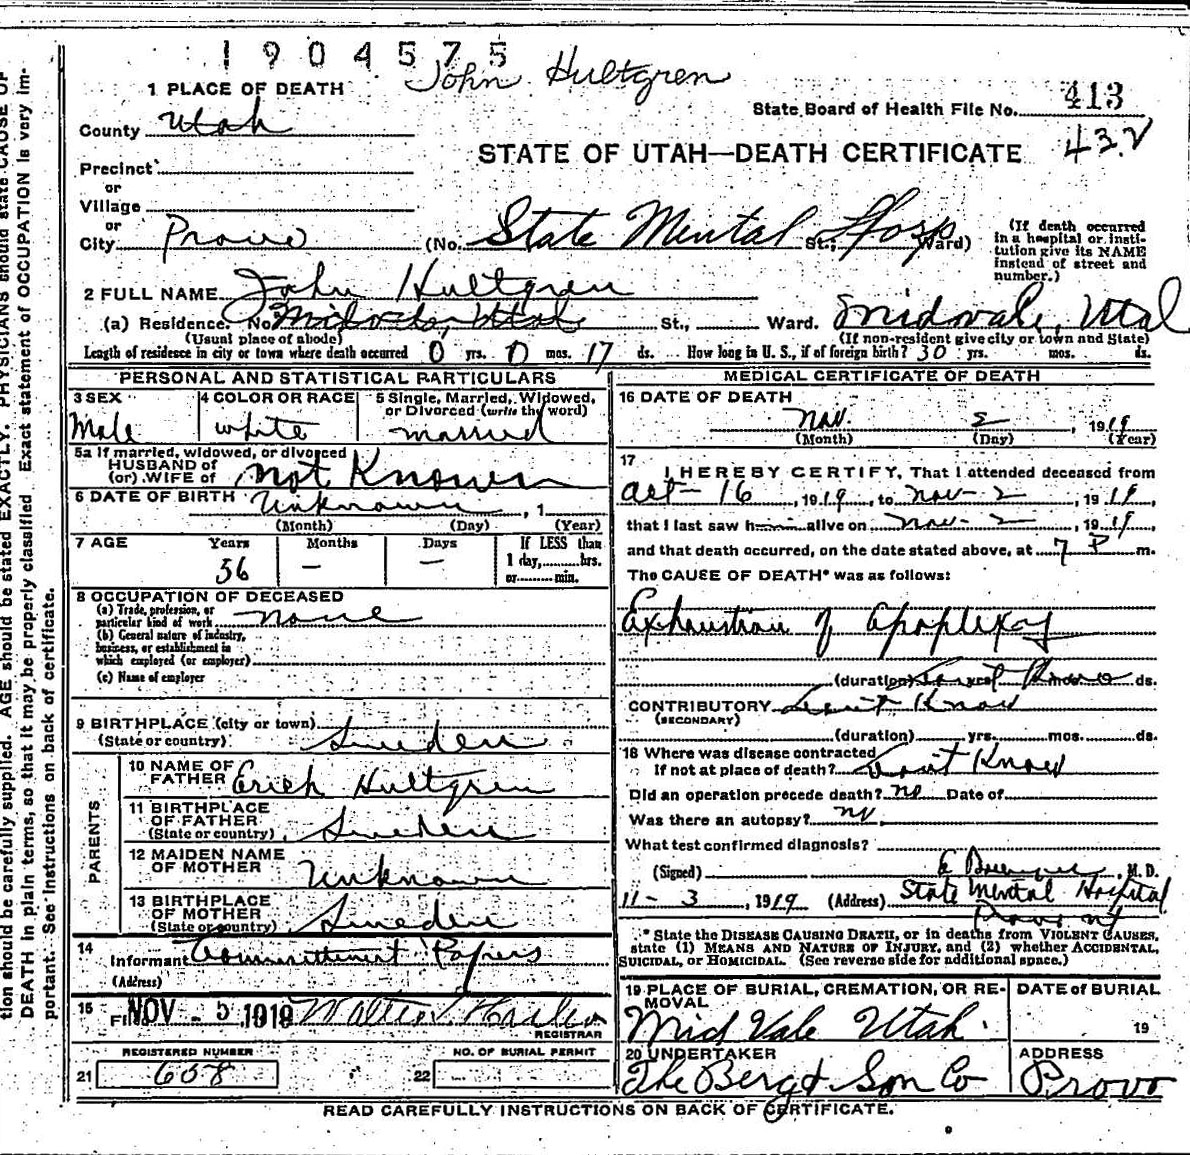 1904575
John Hultgren
1 PLACE OF DEATH
State Board of Health File No. 413
County Utah
43.2
STATE OF UTAH—DEATH CERTIFICATE
Precinct
or
Village
or
City Provo (No. State Mental St.; Hosp Ward)
(If death occurred in a hospital or institution give its NAME instead of street and number.)
2 FULL NAME John Hultgren
(a) Residence. No. Midvale, Utah St., Ward. Midvale, Utah
(Usual place of abode) (If non-resident give city or town and State)
Length of residence in city or town where death occurred 0 yrs. 0 mos. 17 ds. How long in U. S., if of foreign birth? 30 yrs. mos. ds.
PERSONAL AND STATISTICAL PARTICULARS
3 SEX Male
4 COLOR OR RACE white
5 Single, Married, Widowed, or Divorced (write the word) married
5a If married, widowed, or divorced
HUSBAND of
(or) WIFE of Not Known
6 DATE OF BIRTH Unknown, 1
(Month) (Day) (Year)
7 AGE Years Months Days If LESS than
56 — — 1 day,........hrs.
or........min.
8 OCCUPATION OF DECEASED
(a) Trade, profession, or
particular kind of work none
(b) General nature of industry,
business, or establishment in
which employed (or employer)
(c) Name of employer
9 BIRTHPLACE (city or town)
(State or country) Sweden
PARENTS
10 NAME OF FATHER Erick Hultgren
11 BIRTHPLACE OF FATHER
(State or country) Sweden
12 MAIDEN NAME OF MOTHER Unknown
13 BIRTHPLACE OF MOTHER
(State or country) Sweden
14
Informant Committment Papers
(Address)
15 NOV - 5 1919 Walter
REGISTRAR
REGISTERED NUMBER NO. OF BURIAL PERMIT
21 638 22
MEDICAL CERTIFICATE OF DEATH
16 DATE OF DEATH
Nov. 2, 1919
(Month) (Day) (Year)
17
I HEREBY CERTIFY, That I attended deceased from
Oct - 16, 1919, to Nov - 2, 1919,
that I last saw h alive on Nov - 2, 1919,
and that death occurred, on the date stated above, at 7 P m.
The CAUSE OF DEATH* was as follows:
Exhaustion of Apoplexy
(duration) Don't Know ds.
CONTRIBUTORY Don't Know
(SECONDARY)
(duration) yrs. mos. ds.
18 Where was disease contracted
If not at place of death? Don't Know
Did an operation precede death? no Date of
Was there an autopsy? no
What test confirmed diagnosis?
(Signed) E M. D.
11 - 3, 1919 (Address) State Mental Hospital
Provo Ut
* State the DISEASE CAUSING DEATH, or in deaths from VIOLENT CAUSES,
state (1) MEANS AND NATURE OF INJURY, and (2) whether ACCIDENTAL,
SUICIDAL, or HOMICIDAL. (See reverse side for additional space.)
19 PLACE OF BURIAL, CREMATION, OR RE-
MOVAL
Mid Vale Utah
DATE of BURIAL
19
20 UNDERTAKER
The Berg & Son Co
ADDRESS
Provo
READ CAREFULLY INSTRUCTIONS ON BACK OF CERTIFICATE.
tion should be carefully supplied. AGE should be stated EXACTLY. PHYSICIANS should state CAUSE OF
DEATH in plain terms, so that it may be properly classified. Exact statement of OCCUPATION is very im-
portant. See instructions on back of certificate.